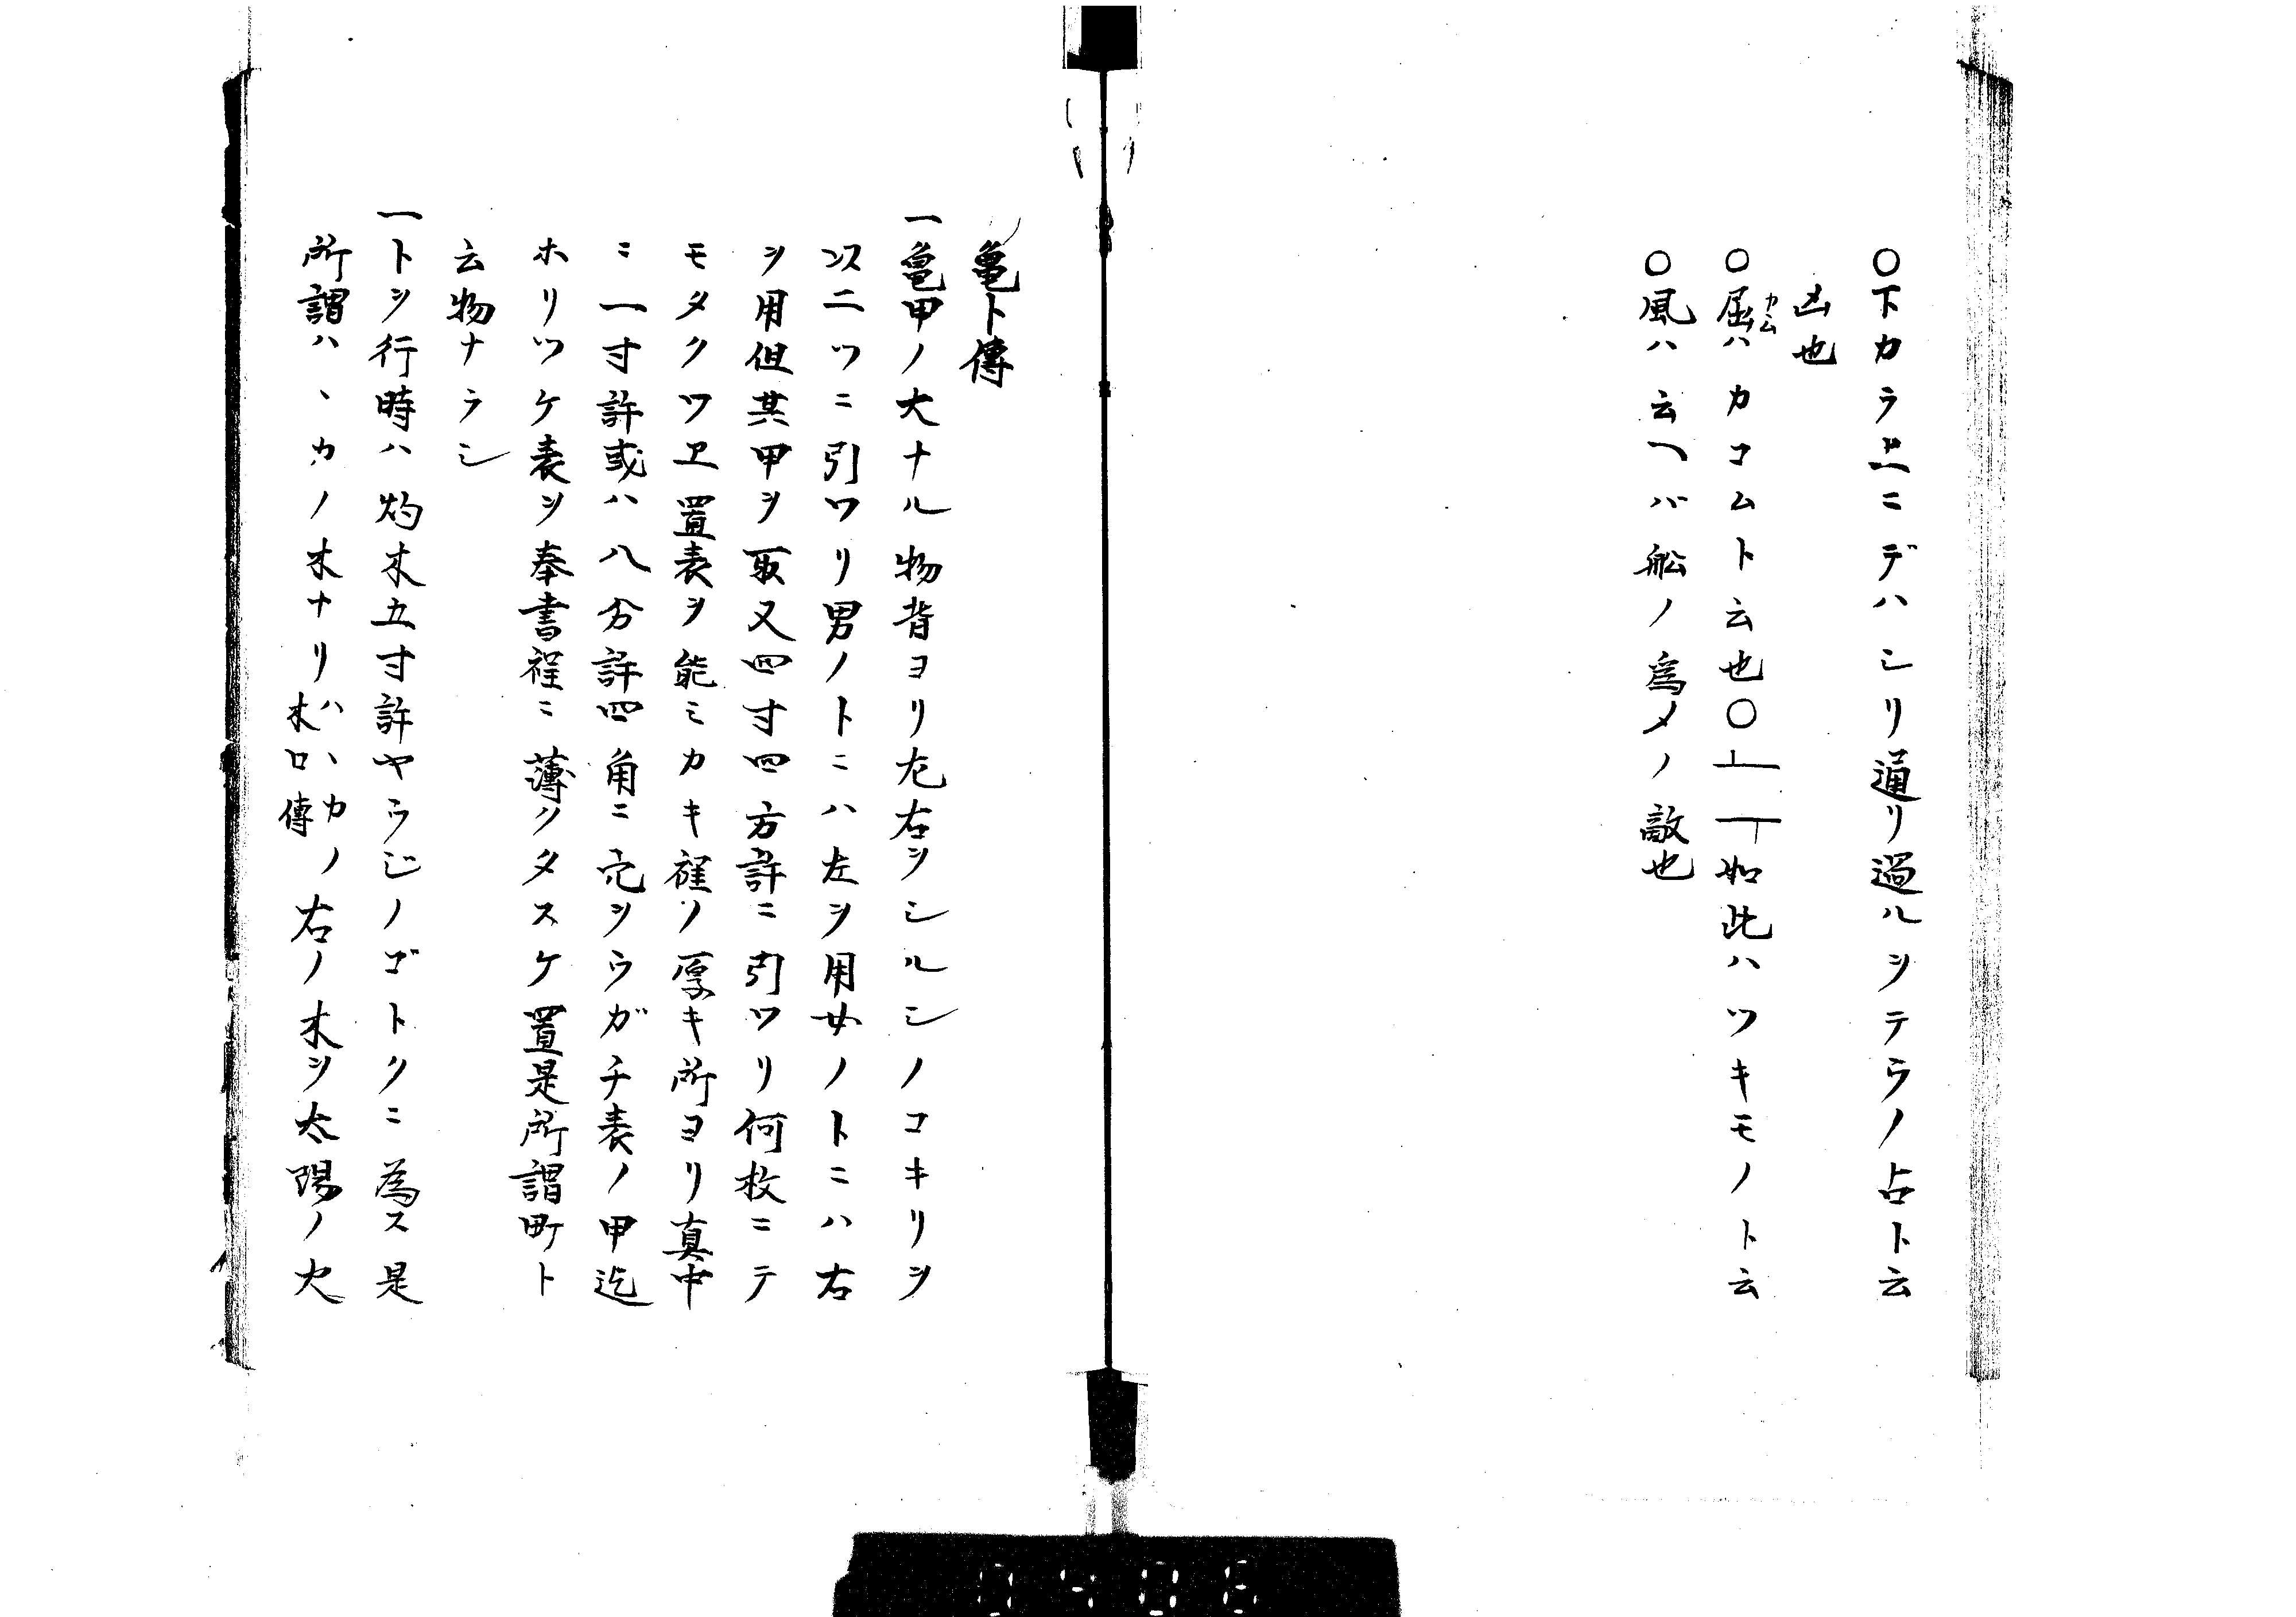 〇下カラ上ニデハシリ通リ過ルヲテラノ占ト云
凶也
〇屈ハカコムト云也〇⊥ ㅜ如此ハツキモノト云
カム
〇風ハ云ヘバ船ノ爲メノ敵也
亀卜傳
一亀甲ノ大ナル物背ヨリ左右ヲシルシノコキリヲ
以二ツニ引ワリ男ノトニハ左ヲ用女ノトニハ右
ヲ用但其甲ヲ取又四寸四方許ニ引ワリ何枚ニテ
モタクワヱ置表ヲ能ミカキ程ノ厚キ所ヨリ真中
ニ一寸許或ハ八分許四角ニ穴ヲウガチ表ノ甲迄
ホリツケ表ヲ奉書程ニ薄クタスケ置是所謂町ト
云物ナラシ
一卜シ行時ハ灼木五寸許ヤウジノゴトクニ為ス是
所謂ハヽカノ木ナリハヽカノ右ノ木ヲ太陽ノ火
木口傳